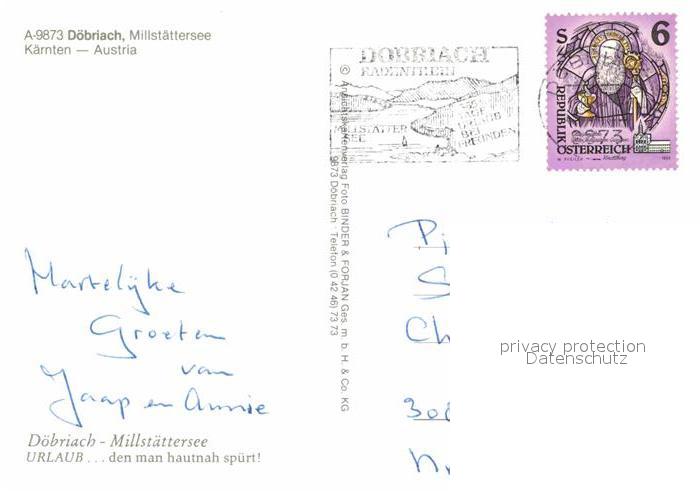 A-9873 Döbriach, Millstättersee
Kärnten — Austria
DÖBRIACH
RADENTHEIN
MILLSTÄTTER
SEE
URLAUB
BEI
FREUNDEN
S 6
REPUBLIK
ÖSTERREICH
9873
© Ansichtskartenverlag Foto BINDER & FORJAN Ges. m. b. H. & Co. KG
9873 Döbriach · Telefon (0 42 46) 73 73
Hartelijke
Groeten
van
Jaap en Annie
Pi
S
Ch
30
N
privacy protection
Datenschutz
Döbriach - Millstättersee
URLAUB . . . den man hautnah spürt!